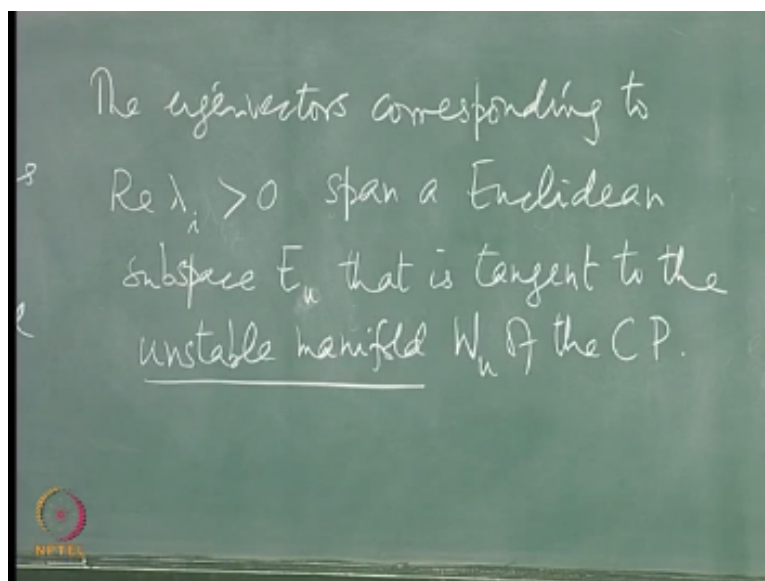 The eigenvectors corresponding to
s Re λi > 0 span a Euclidean
subspace Eu that is tangent to the
l unstable manifold Wu of the CP.
NPTEL